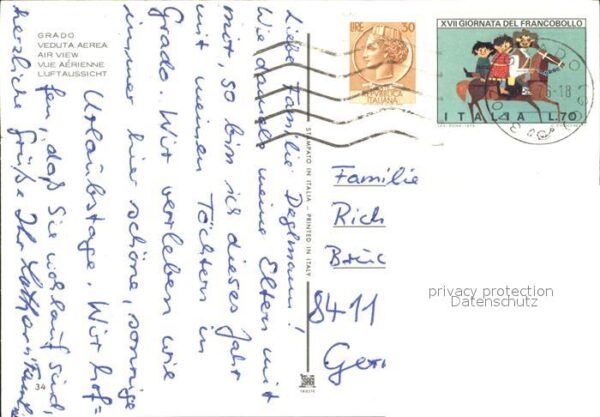 GRADO
VEDUTA AEREA
AIR VIEW
VUE AÉRIENNE
LUFTAUSSICHT
Liebe Familie Deglmann!
Wie damals meine Eltern mit
mir, so bin ich dieses Jahr
mit meinen Töchtern in
Grado. Wir verleben wie
immer hier schöne, sonnige
Urlaubstage. Wir hof=
fen, daß Sie wohlauf sind,
herzliche Grüße Ihr Lothar u. Fam
34
STAMPATO IN ITALIA PRINTED IN ITALY
LIRE 50
REPUBBLICA
ITALIANA
XVII GIORNATA DEL FRANCOBOLLO
ITALIA L.70
Familie
Rich
Brüc
8411
Ger
privacy protection
Datenschutz